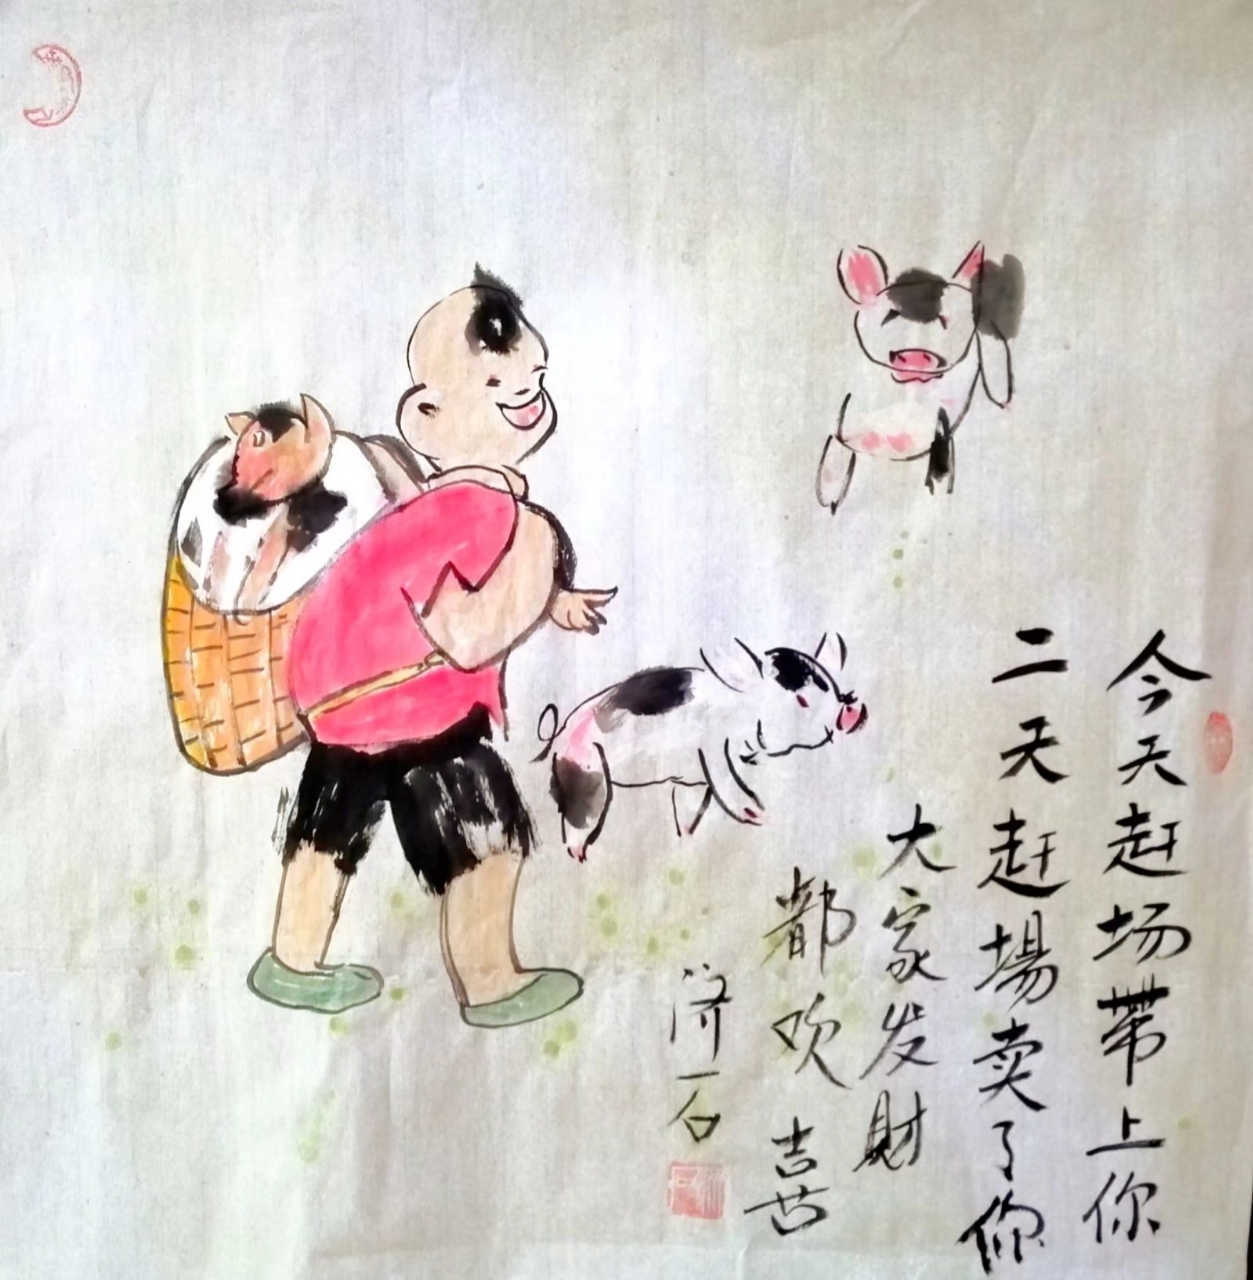 今天赶场帶上你
二天赶場卖了你
大家发財
都欢喜
济石